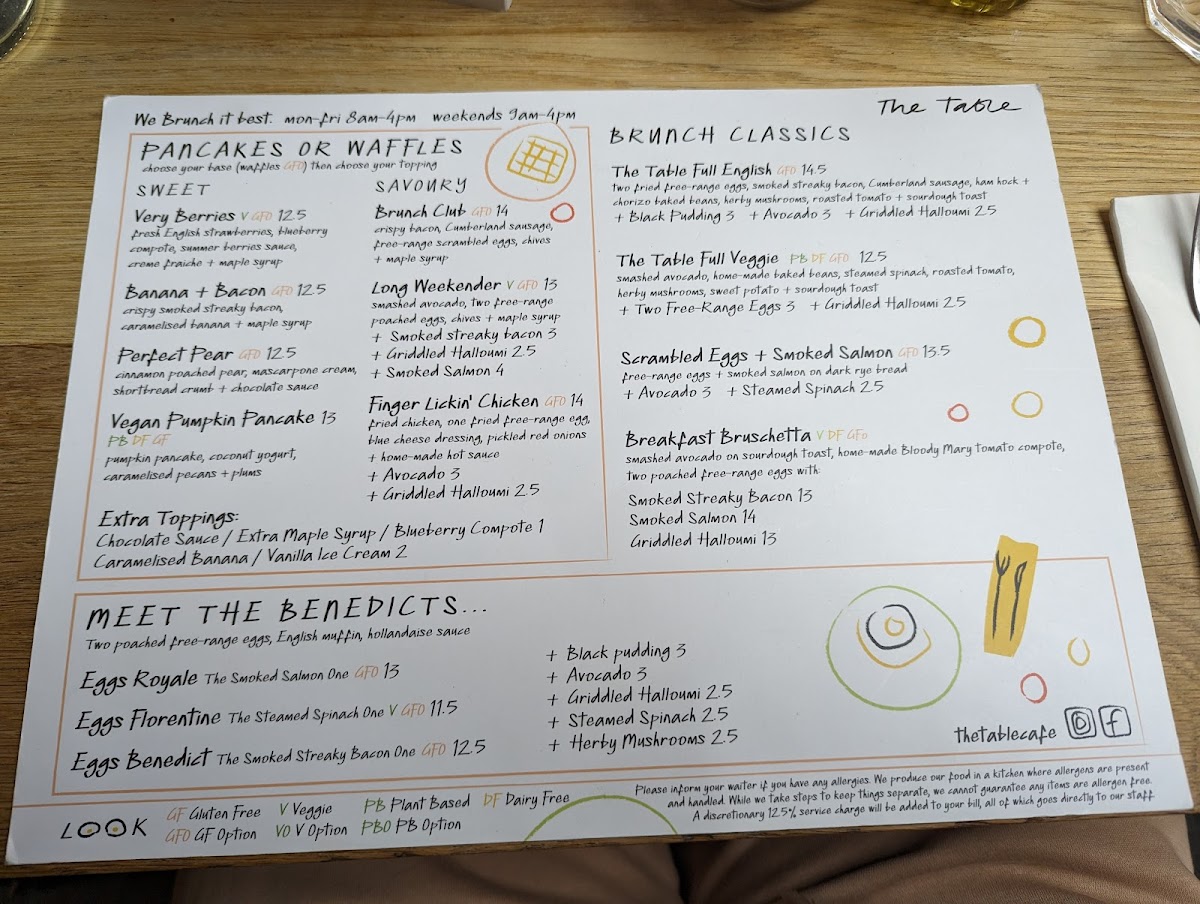 We Brunch it best. mon-fri 8am-4pm weekends 9am-4pm
The Table
PANCAKES OR WAFFLES
choose your base (waffles GFO) then choose your topping
SWEET
Very Berries V GFO 12.5
fresh English strawberries, blueberry
compote, summer berries sauce,
creme fraiche + maple syrup
Banana + Bacon GFO 12.5
crispy smoked streaky bacon,
caramelised banana + maple syrup
Perfect Pear GFO 12.5
cinnamon poached pear, mascarpone cream,
shortbread crumb + chocolate sauce
Vegan Pumpkin Pancake 13
PB DF GF
pumpkin pancake, coconut yogurt,
caramelised pecans + plums
SAVOURY
Brunch Club GFO 14
crispy bacon, Cumberland sausage,
free-range scrambled eggs, chives
+ maple syrup
Long Weekender V GFO 13
smashed avocado, two free-range
poached eggs, chives + maple syrup
+ Smoked streaky bacon 3
+ Griddled Halloumi 2.5
+ Smoked Salmon 4
Finger Lickin' Chicken GFO 14
fried chicken, one fried free-range egg,
blue cheese dressing, pickled red onions
+ home-made hot sauce
+ Avocado 3
+ Griddled Halloumi 2.5
Extra Toppings:
Chocolate Sauce / Extra Maple Syrup / Blueberry Compote 1
Caramelised Banana / Vanilla Ice Cream 2
BRUNCH CLASSICS
The Table Full English GFO 14.5
two fried free-range eggs, smoked streaky bacon, Cumberland sausage, ham hock +
chorizo baked beans, herby mushrooms, roasted tomato + sourdough toast
+ Black Pudding 3 + Avocado 3 + Griddled Halloumi 2.5
The Table Full Veggie PB DF GFO 12.5
smashed avocado, home-made baked beans, steamed spinach, roasted tomato,
herby mushrooms, sweet potato + sourdough toast
+ Two Free-Range Eggs 3 + Griddled Halloumi 2.5
Scrambled Eggs + Smoked Salmon GFO 13.5
free-range eggs + smoked salmon on dark rye bread
+ Avocado 3 + Steamed Spinach 2.5
Breakfast Bruschetta V DF GFO
smashed avocado on sourdough toast, home-made Bloody Mary tomato compote,
two poached free-range eggs with:
Smoked Streaky Bacon 13
Smoked Salmon 14
Griddled Halloumi 13
MEET THE BENEDICTS...
Two poached free-range eggs, English muffin, hollandaise sauce
Eggs Royale The Smoked Salmon One GFO 13
Eggs Florentine The Steamed Spinach One V GFO 11.5
Eggs Benedict The Smoked Streaky Bacon One GFO 12.5
+ Black pudding 3
+ Avocado 3
+ Griddled Halloumi 2.5
+ Steamed Spinach 2.5
+ Herby Mushrooms 2.5
thetablecafe
LOOK
GF Gluten Free V Veggie PB Plant Based DF Dairy Free
GFO GF Option VO V Option PBO PB Option
Please inform your waiter if you have any allergies. We produce our food in a kitchen where allergens are present
and handled. While we take steps to keep things separate, we cannot guarantee any items are allergen free.
A discretionary 12.5% service charge will be added to your bill, all of which goes directly to our staff